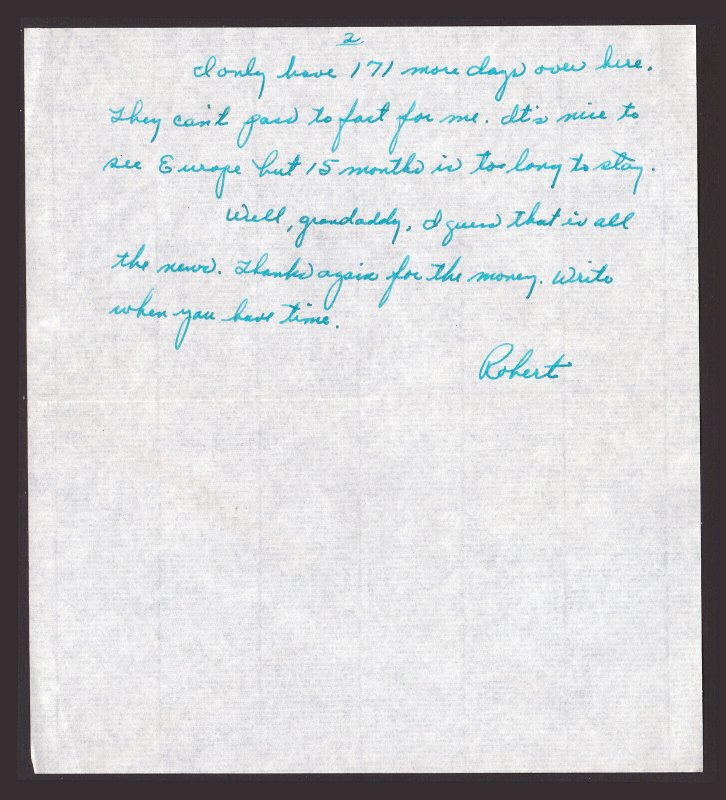 2
I only have 171 more days over here.
They can't pass to fast for me. It's nice to
see Europe but 15 months is too long to stay.
Well, grandaddy, I guess that is all
the news. Thanks again for the money. Write
when you have time.
Robert